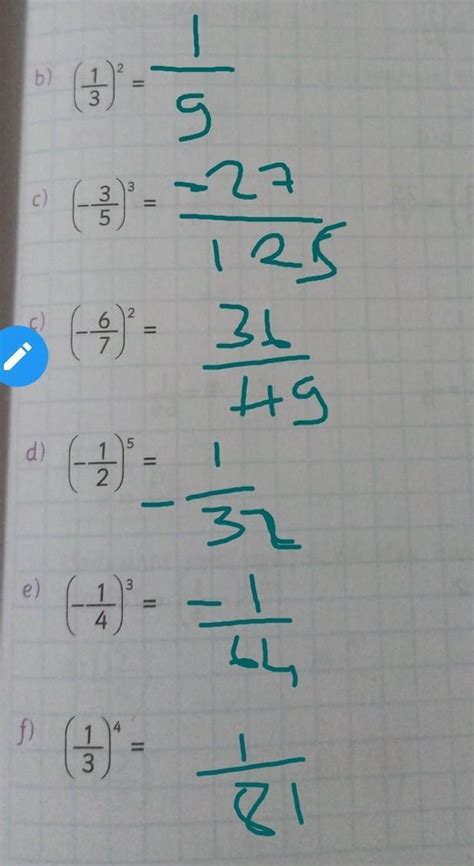 b) (1/3)² = 1/9
c) (-3/5)³ = -27/125
ç) (-6/7)² = 36/49
d) (-1/2)⁵ = -1/32
e) (-1/4)³ = -1/64
f) (1/3)⁴ = 1/81